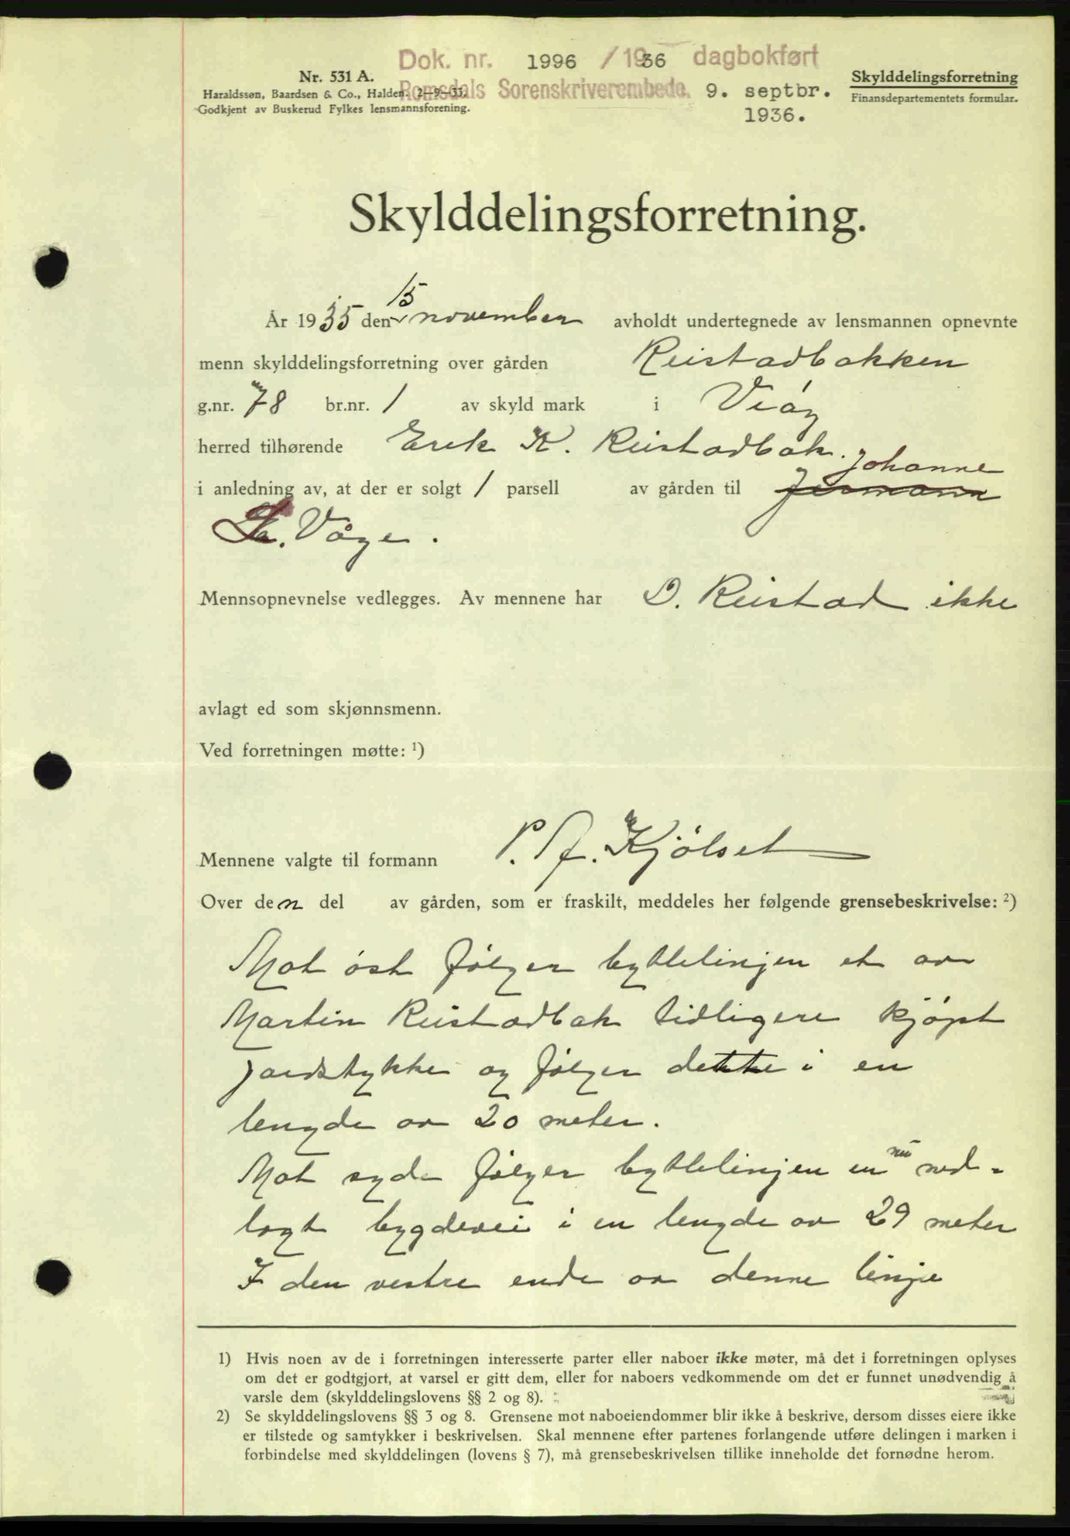 Dok. nr. 1996 / 1936 dagbokført
Nr. 531 A.
Skylddelingsforretning
Haraldssøn, Baardsen & Co., Halden. 2—9—33.
Romsdals Sorenskriverembede. 9. septbr.
Finansdepartementets formular.
Godkjent av Buskerud Fylkes lensmannsforening.
1936.
Skylddelingsforretning.
År 1935 den 15 november avholdt undertegnede av lensmannen opnevnte
menn skylddelingsforretning over gården Reistadbakken
g.nr. 78 br.nr. 1 av skyld mark i Veøy
herred tilhørende Erik K. Reistadbak.
i anledning av, at der er solgt 1 parsell av gården til Johanne
La. Våge.
Mennsopnevnelse vedlegges. Av mennene har O. Reistad ikke
avlagt ed som skjønnsmenn.
Ved forretningen møtte: ¹)
Mennene valgte til formann P. A. Kjølset
Over den del av gården, som er fraskilt, meddeles her følgende grensebeskrivelse: ²)
Mot øst følger byttelinjen et av
Martin Reistadbak tidligere kjøpt
jordstykke og følger dette i en
lengde av 20 meter.
Mot syd følger byttelinjen en nu ned-
lagt bygdevei i en lengde av 29 meter
I den vestre ende av denne linje
1) Hvis noen av de i forretningen interesserte parter eller naboer ikke møter, må det i forretningen oplyses
om det er godtgjort, at varsel er gitt dem, eller for naboers vedkommende om det er funnet unødvendig å
varsle dem (skylddelingslovens §§ 2 og 8).
2) Se skylddelingslovens §§ 3 og 8. Grensene mot naboeiendommer blir ikke å beskrive, dersom disses eiere ikke
er tilstede og samtykker i beskrivelsen. Skal mennene efter partenes forlangende utføre delingen i marken i
forbindelse med skylddelingen (lovens § 7), må grensebeskrivelsen tillike inneholde det fornødne herom.